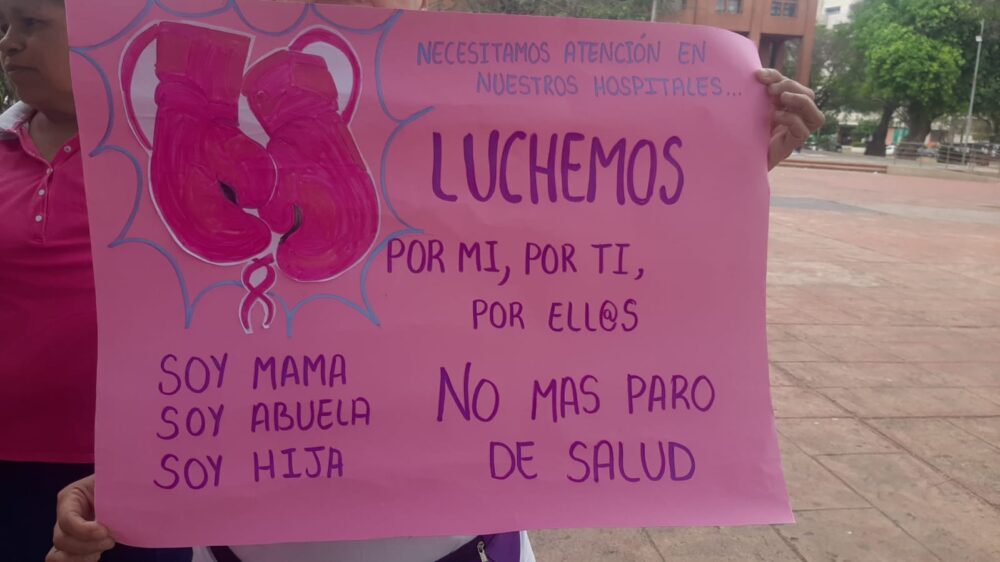 NECESITAMOS ATENCIÓN EN
NUESTROS HOSPITALES...
LUCHEMOS
POR MI, POR TI,
POR ELL@S
SOY MAMA
SOY ABUELA
SOY HIJA
NO MAS PARO
DE SALUD